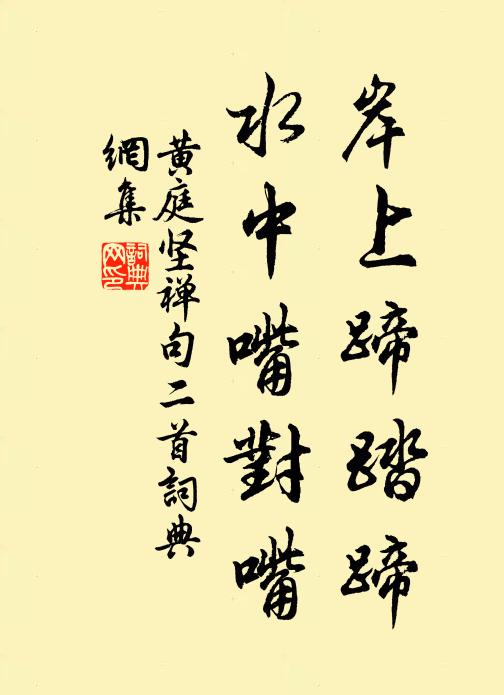 岸上蹄踏蹄
水中嘴對嘴
黄庭坚禅句二首詞典
網集
詞典
网印